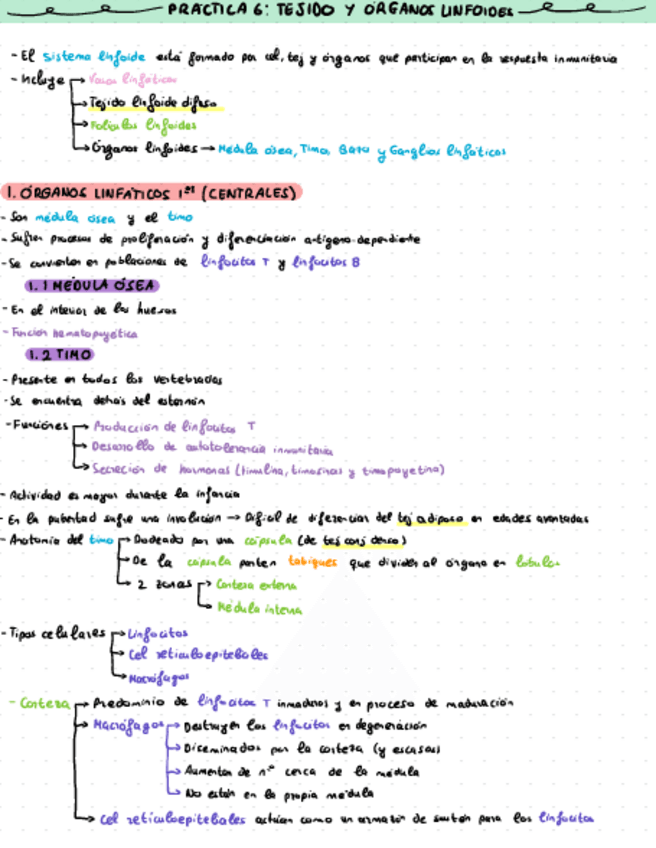 PRÁCTICA 6: TEJIDO Y ÓRGANOS LINFOIDES
- El sistema linfoide está formado por cel, tej y órganos que participan en la respuesta inmunitaria
- Incluye → Vasos linfáticos
→ Tejido linfoide difuso
→ Folículos linfoides
→ Órganos linfoides → Médula ósea, Timo, Bazo y Ganglios linfáticos
1. ÓRGANOS LINFÁTICOS 1ºˢ (CENTRALES)
- Son médula ósea y el timo
- Sufren procesos de proliferación y diferenciación antígeno dependiente
- Se convierten en poblaciones de linfocitos T y linfocitos B
1.1 MÉDULA ÓSEA
- En el interior de los huesos
- Función hematopoyética
1.2 TIMO
- Presente en todos los vertebrados
- Se encuentra detrás del esternón
- Funciones → Producción de linfocitos T
→ Desarrollo de autotolerancia inmunitaria
→ Secreción de hormonas (timulina, timosinas y timopoyetina)
- Actividad es mayor durante la infancia
- En la pubertad sufre una involución → Difícil de diferenciar del tej adiposo en edades avanzadas
- Anatomía del timo → Rodeado por una cápsula (de tej conj denso)
→ De la cápsula parten tabiques que dividen al órgano en lobulos
→ 2 zonas → Corteza externa
→ Médula interna
- Tipos celulares → Linfocitos
→ Cel reticuloepiteliales
→ Macrófagos
- Corteza → Predominio de linfocitos T inmaduros y en proceso de maduración
→ Macrófagos → Destruyen los linfocitos en degeneración
→ Diseminados por la corteza (y escasos)
→ Aumentan de nº cerca de la médula
→ No están en la propia médula
→ Cel reticuloepiteliales actúan como un armazón de sostén para los linfocitos